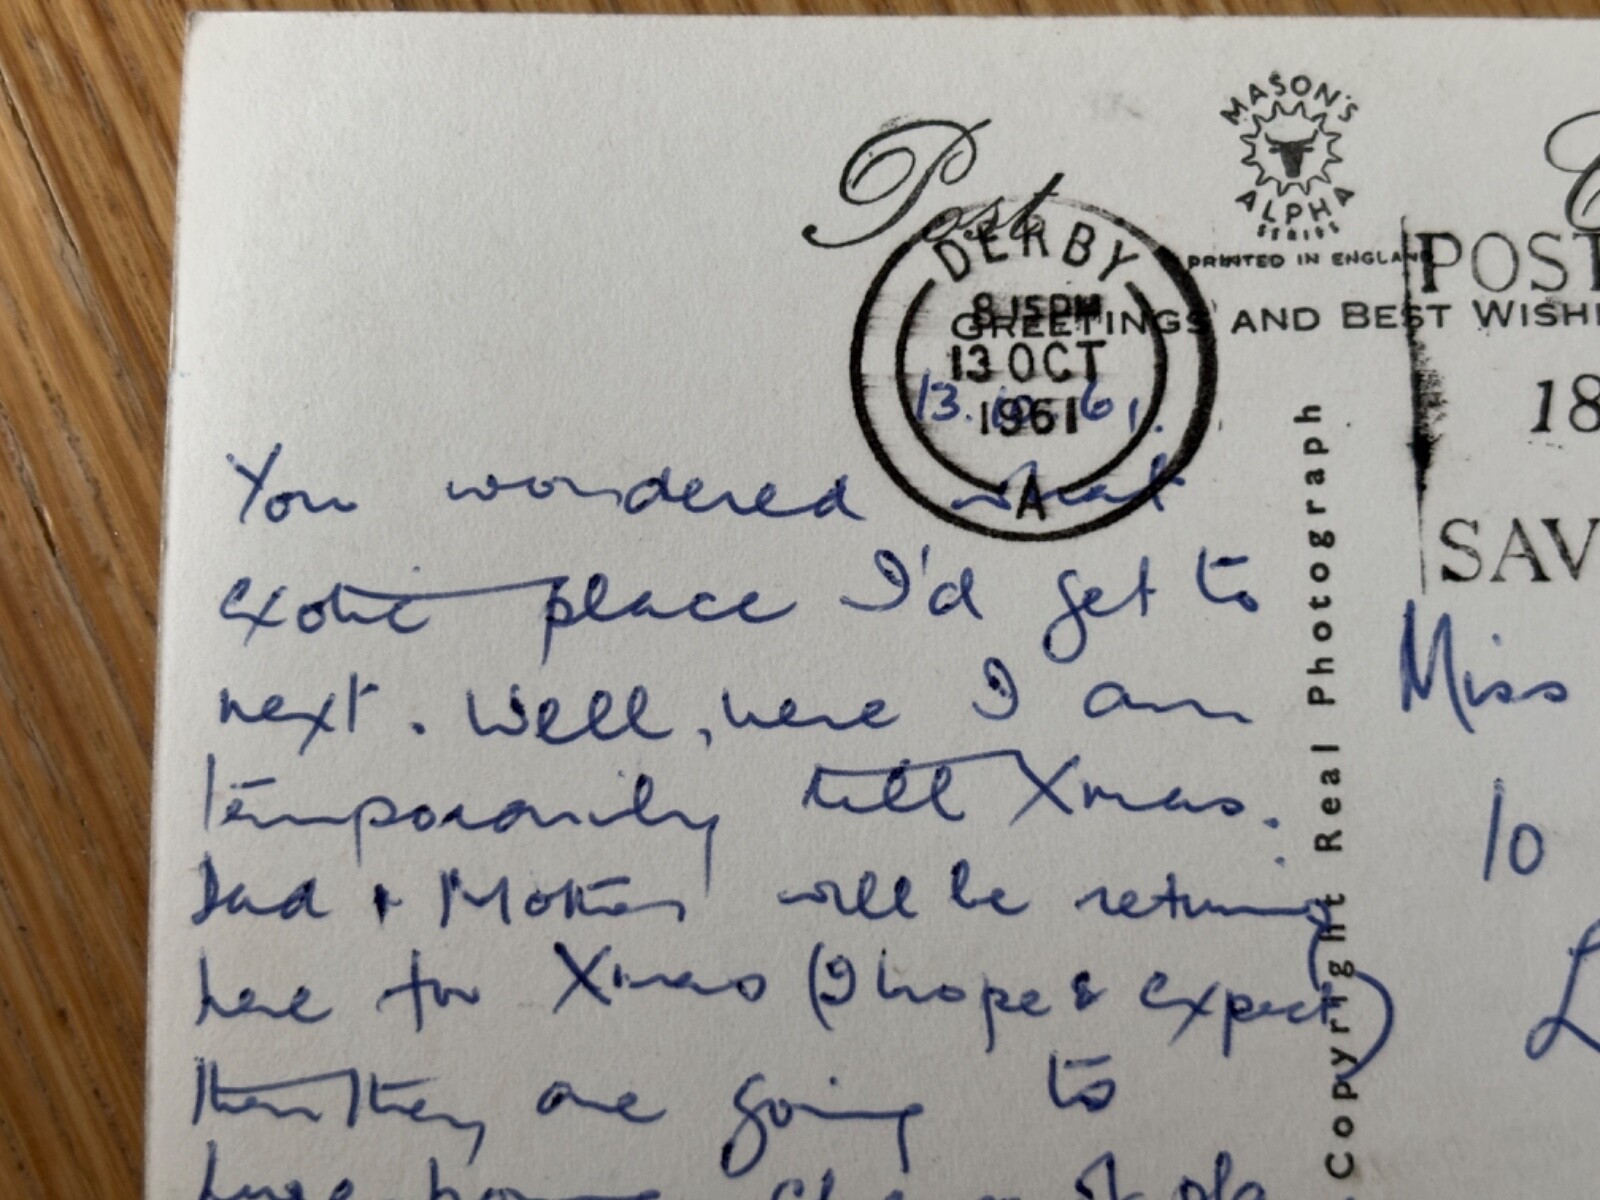 MASON'S
ALPHA
SERIES
PRINTED IN ENGLAND
Post
GREETINGS AND BEST WISH
DERBY
8 15 PM
13 OCT
1961
A
POST
18
SAV
13.10.61.
You wondered what
exotic place I'd get to
next. Well, here I am
temporarily till Xmas.
Dad & Mother will be returning
here for Xmas (I hope & expect)
then they are going to
Copyright Real Photograph
Miss
10
L